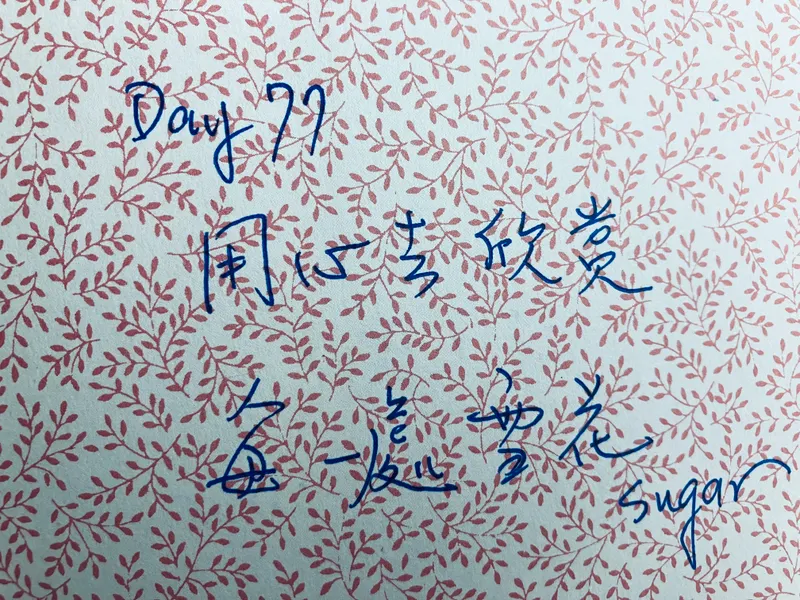 Day 77
用心去欣赏
每一處雪花
sugar